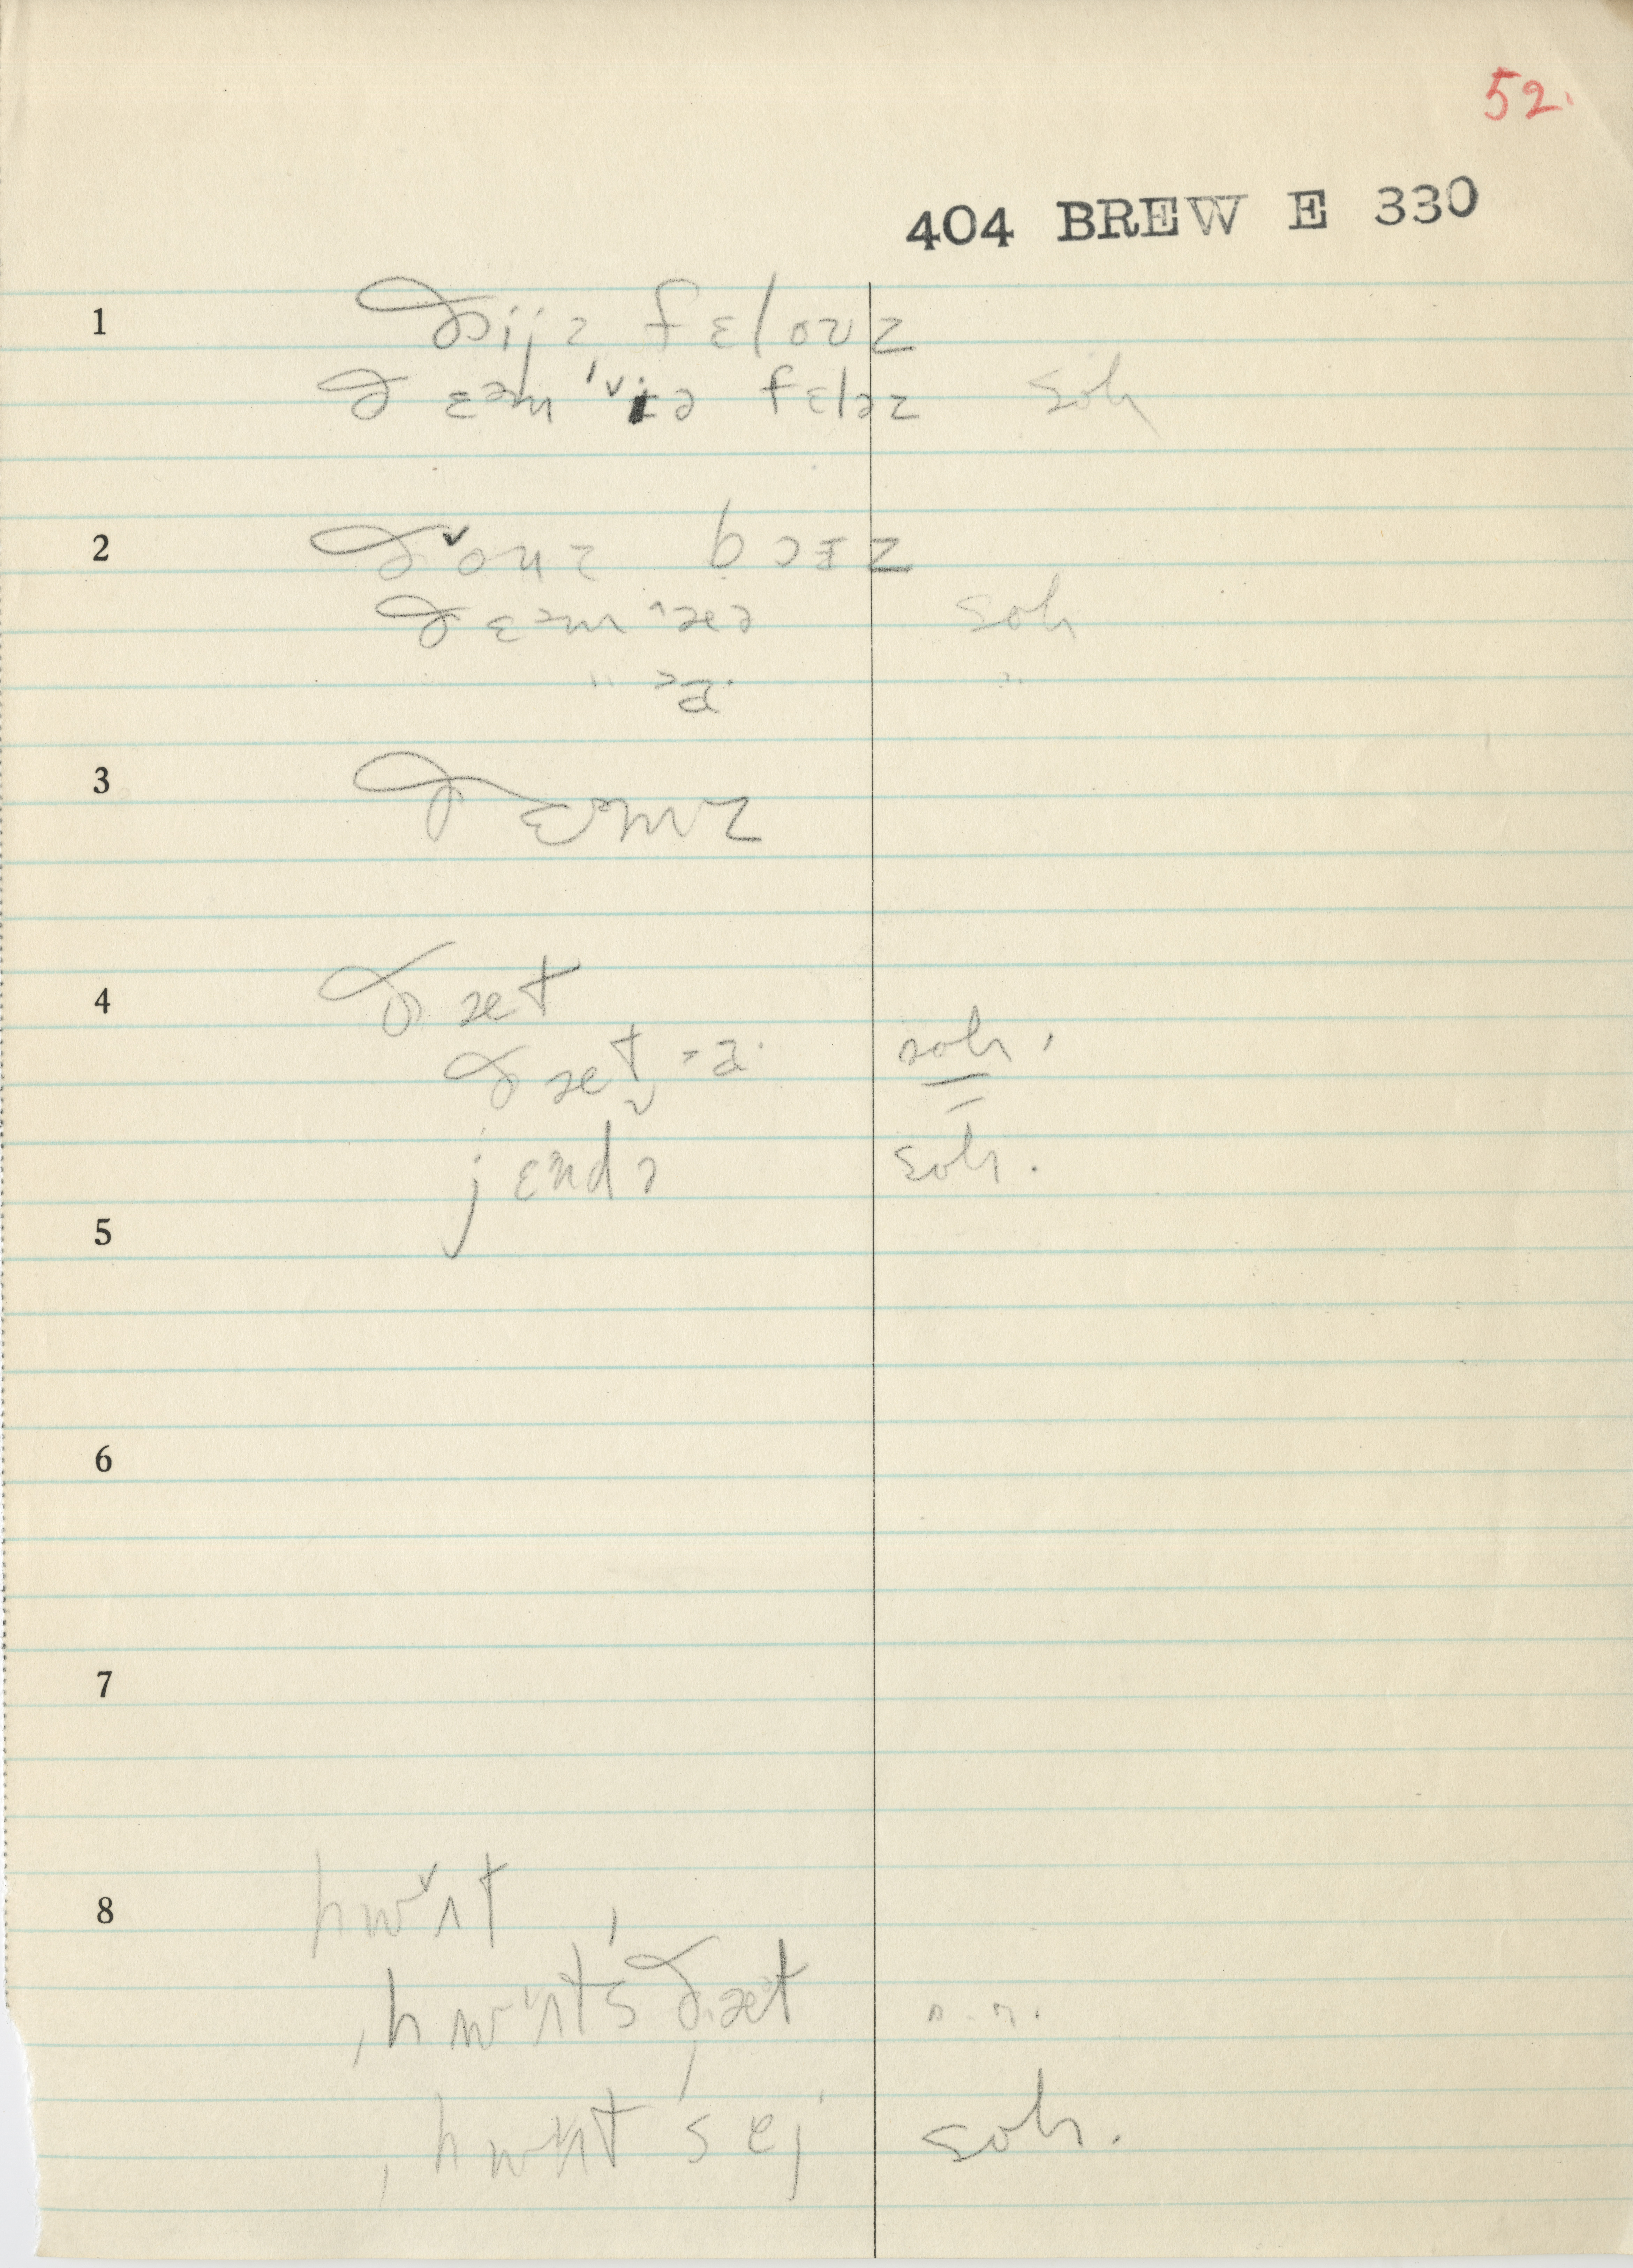 52.
404 BREW E 330
1 ðijz fɛloʊz
ðɛəm fɛləz soh
2 ðoʊz bɔɪz
ðɛəm soh
3 ðɛəmz
4 ðæt
ðæt soh.
jɛndə soh.
5
6
7
8 hwʌt
hwʌts ðæt n.r.
hwʌt s ej soh.